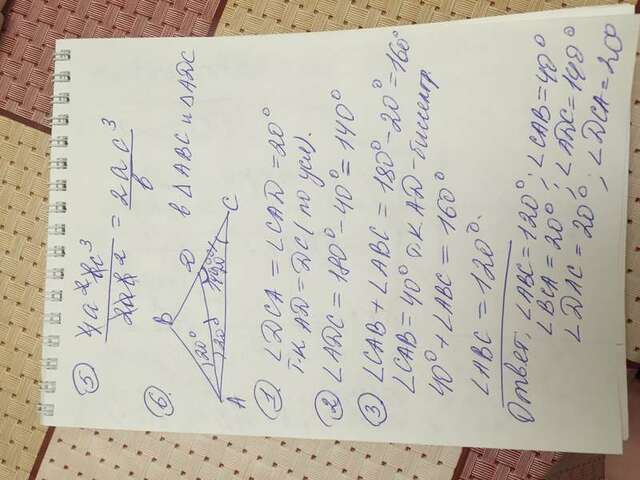 5 4a²bc³ / 2ab² = 2ac³ / b
6.
В
D
20°
20°
140°
20°
А
С
в △ABC и △ADC
1 ∠DCA = ∠CAD = 20°
т.к AD = DC (по усл).
2 ∠ADC = 180° - 40° = 140°
3 ∠CAB + ∠ABC = 180° - 20° = 160°
∠CAB = 40° т.к AD - биссектр.
40° + ∠ABC = 160°
∠ABC = 120°.
Ответ, ∠ABC = 120°; ∠CAB = 40°
∠BCA = 20°; ∠ADC = 140°
∠DAC = 20°; ∠DCA = 20°